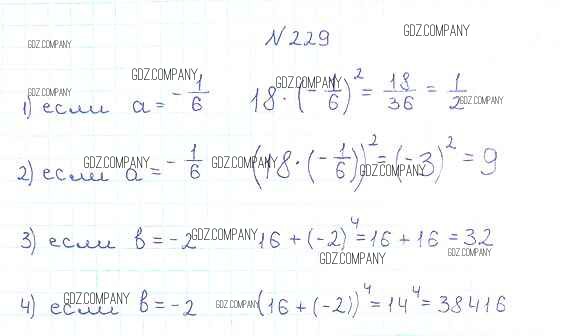 N 229
GDZ.COMPANY
GDZ.COMPANY
GDZ.COMPANY
GDZ.COMPANY
GDZ.COMPANY
1) если a = -1/6 18·(-1/6)² = 18/36 = 1/2
GDZ.COMPANY
GDZ.COMPANY
GDZ.COMPANY
GDZ.COMPANY
2) если a = -1/6 (18·(-1/6))² = (-3)² = 9
3) если в = -2 16 + (-2)⁴ = 16 + 16 = 32
GDZ.COMPANY
GDZ.COMPANY
GDZ.COMPANY
4) если в = -2 (16 + (-2))⁴ = 14⁴ = 38416
GDZ.COMPANY
GDZ.COMPANY